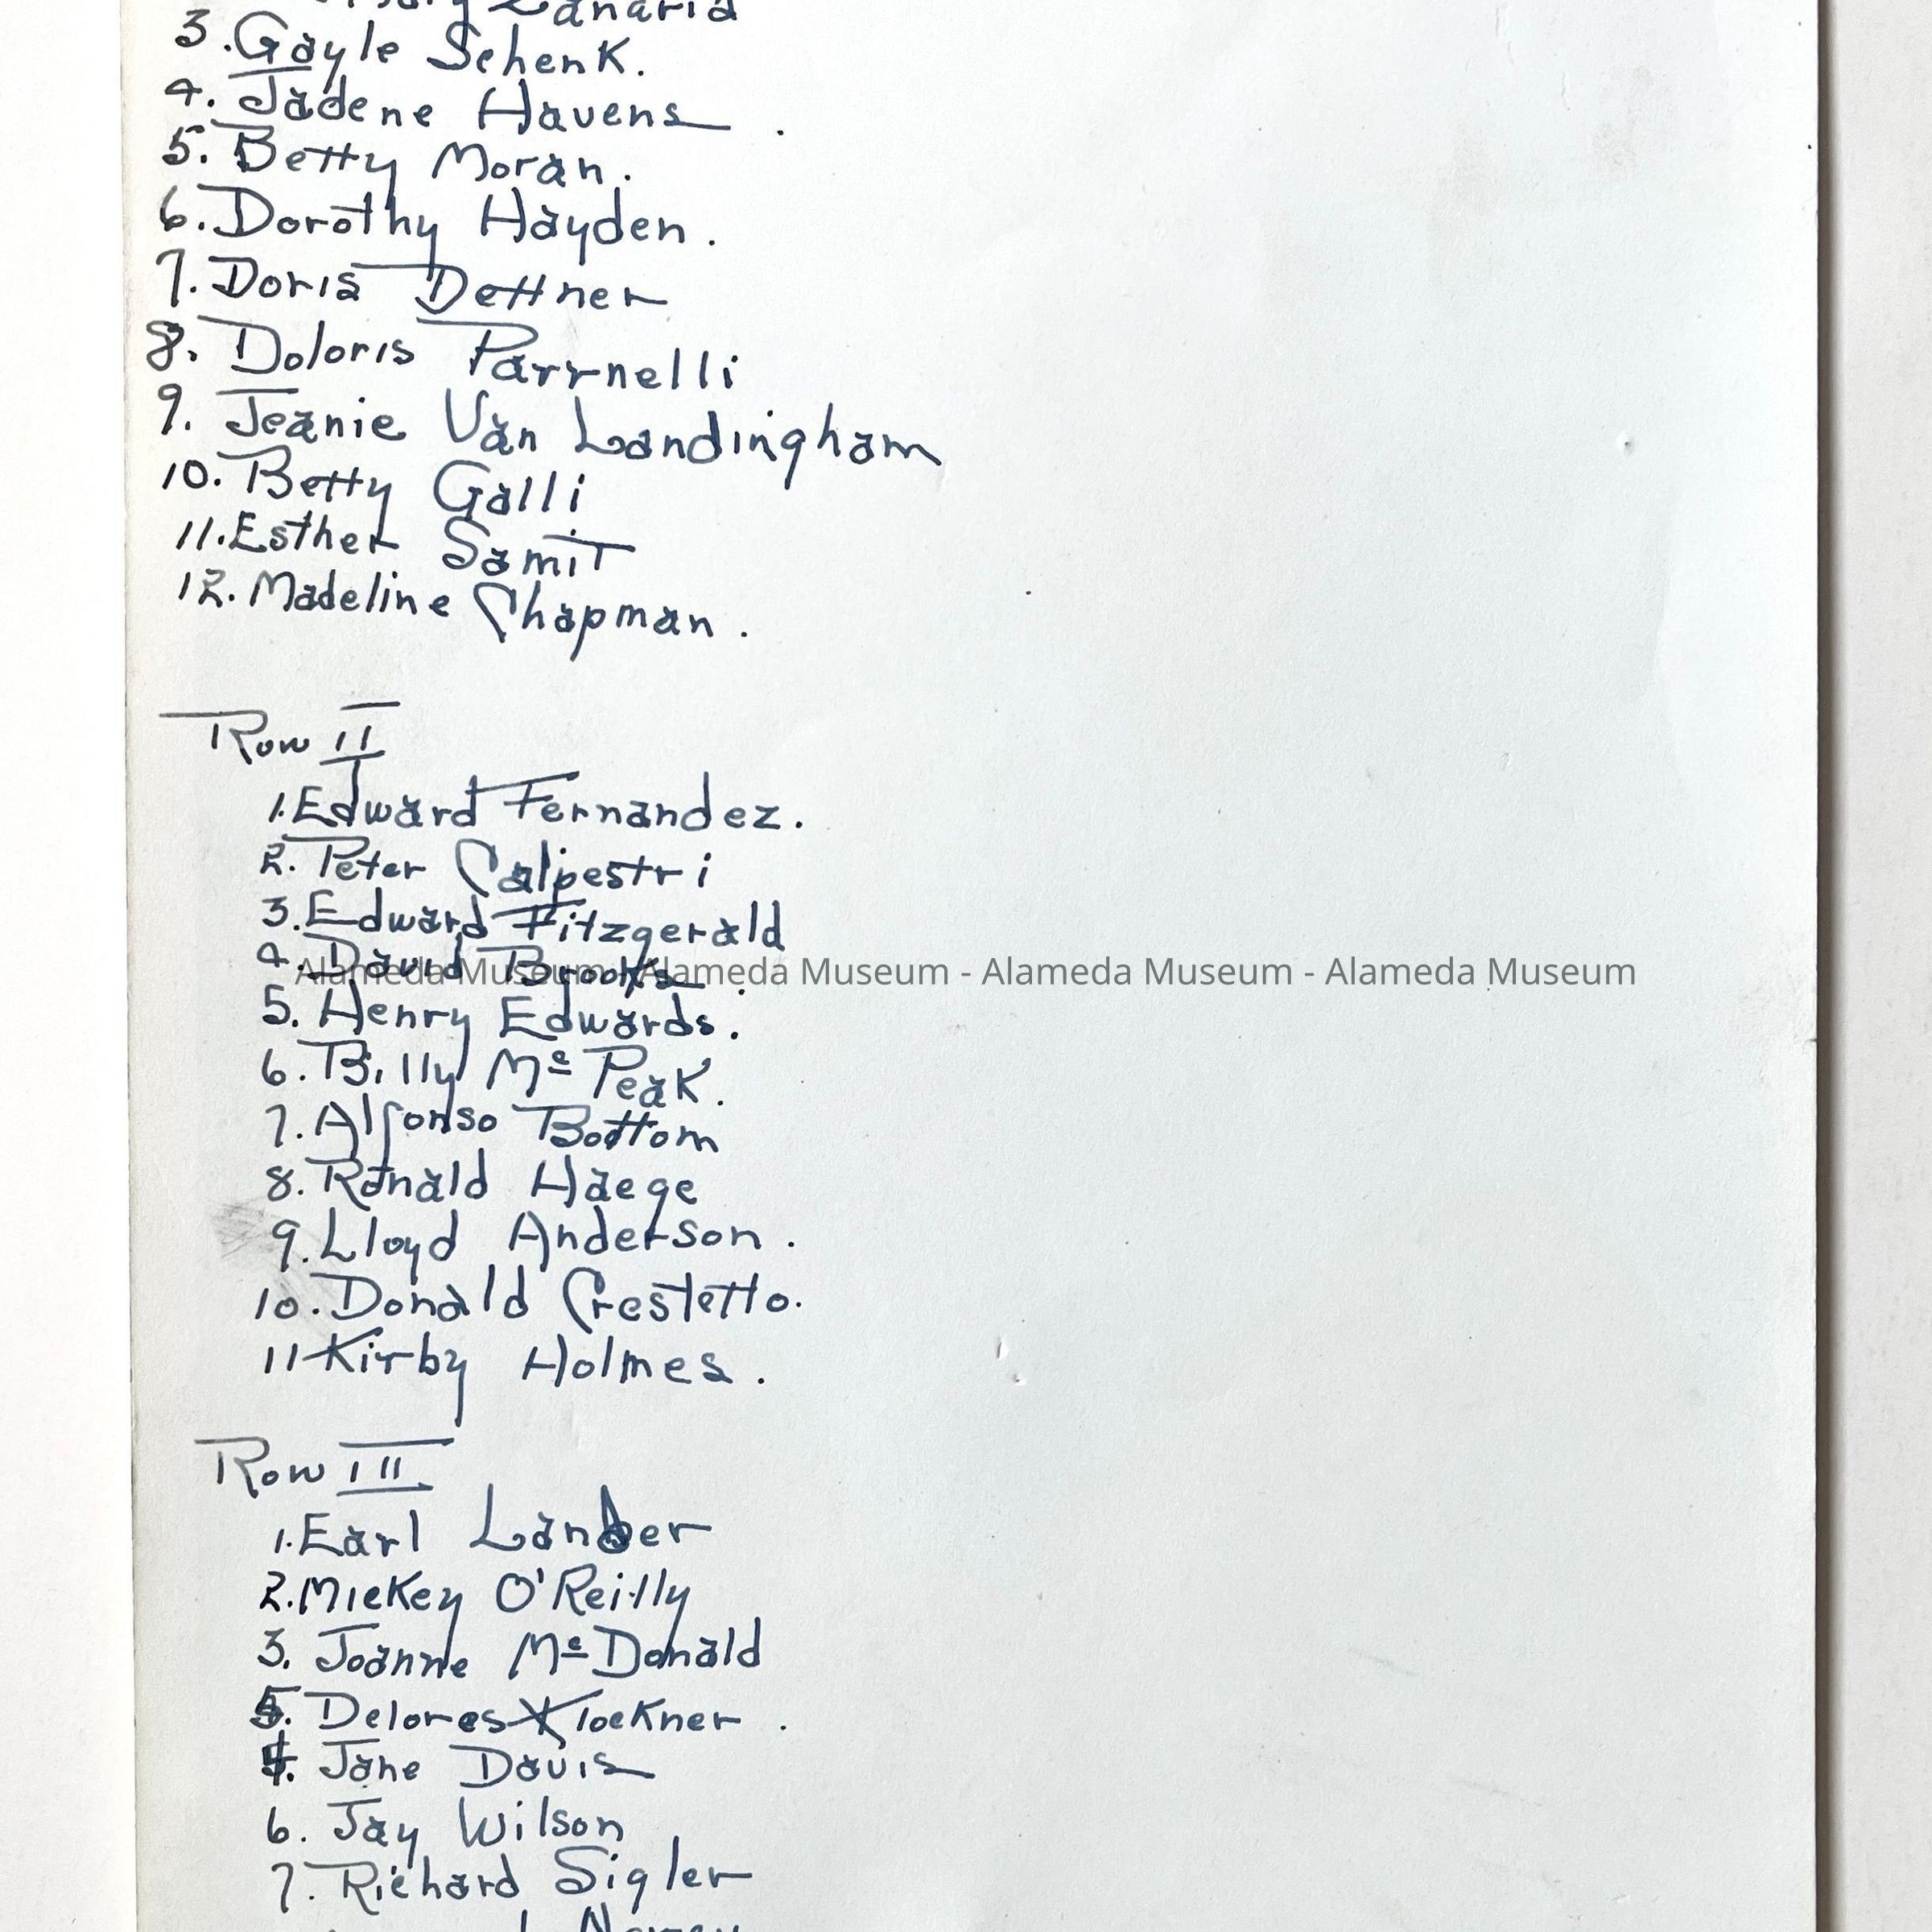 3. Gayle Schenk.
4. Jadene Havens.
5. Betty Moran.
6. Dorothy Hayden.
7. Doris Dettner
8. Doloris Parrnelli
9. Jeanie Van Landingham
10. Betty Galli
11. Esther Samit
12. Madeline Chapman.
Row II
1. Edward Fernandez.
2. Peter Calpestri
3. Edward Fitzgerald
4. David Brooks.
Alameda Museum - Alameda Museum - Alameda Museum - Alameda Museum
5. Henry Edwards.
6. Billy Mc Peak.
7. Alfonso Bottom
8. Ronald Haege
9. Lloyd Anderson.
10. Donald Crestetto.
11 Kirby Holmes.
Row III
1. Earl Lander
2. Mickey O'Reilly
3. Joanne McDonald
5. Delores Klockner.
4. Jane Davis
6. Jay Wilson
7. Richard Sigler